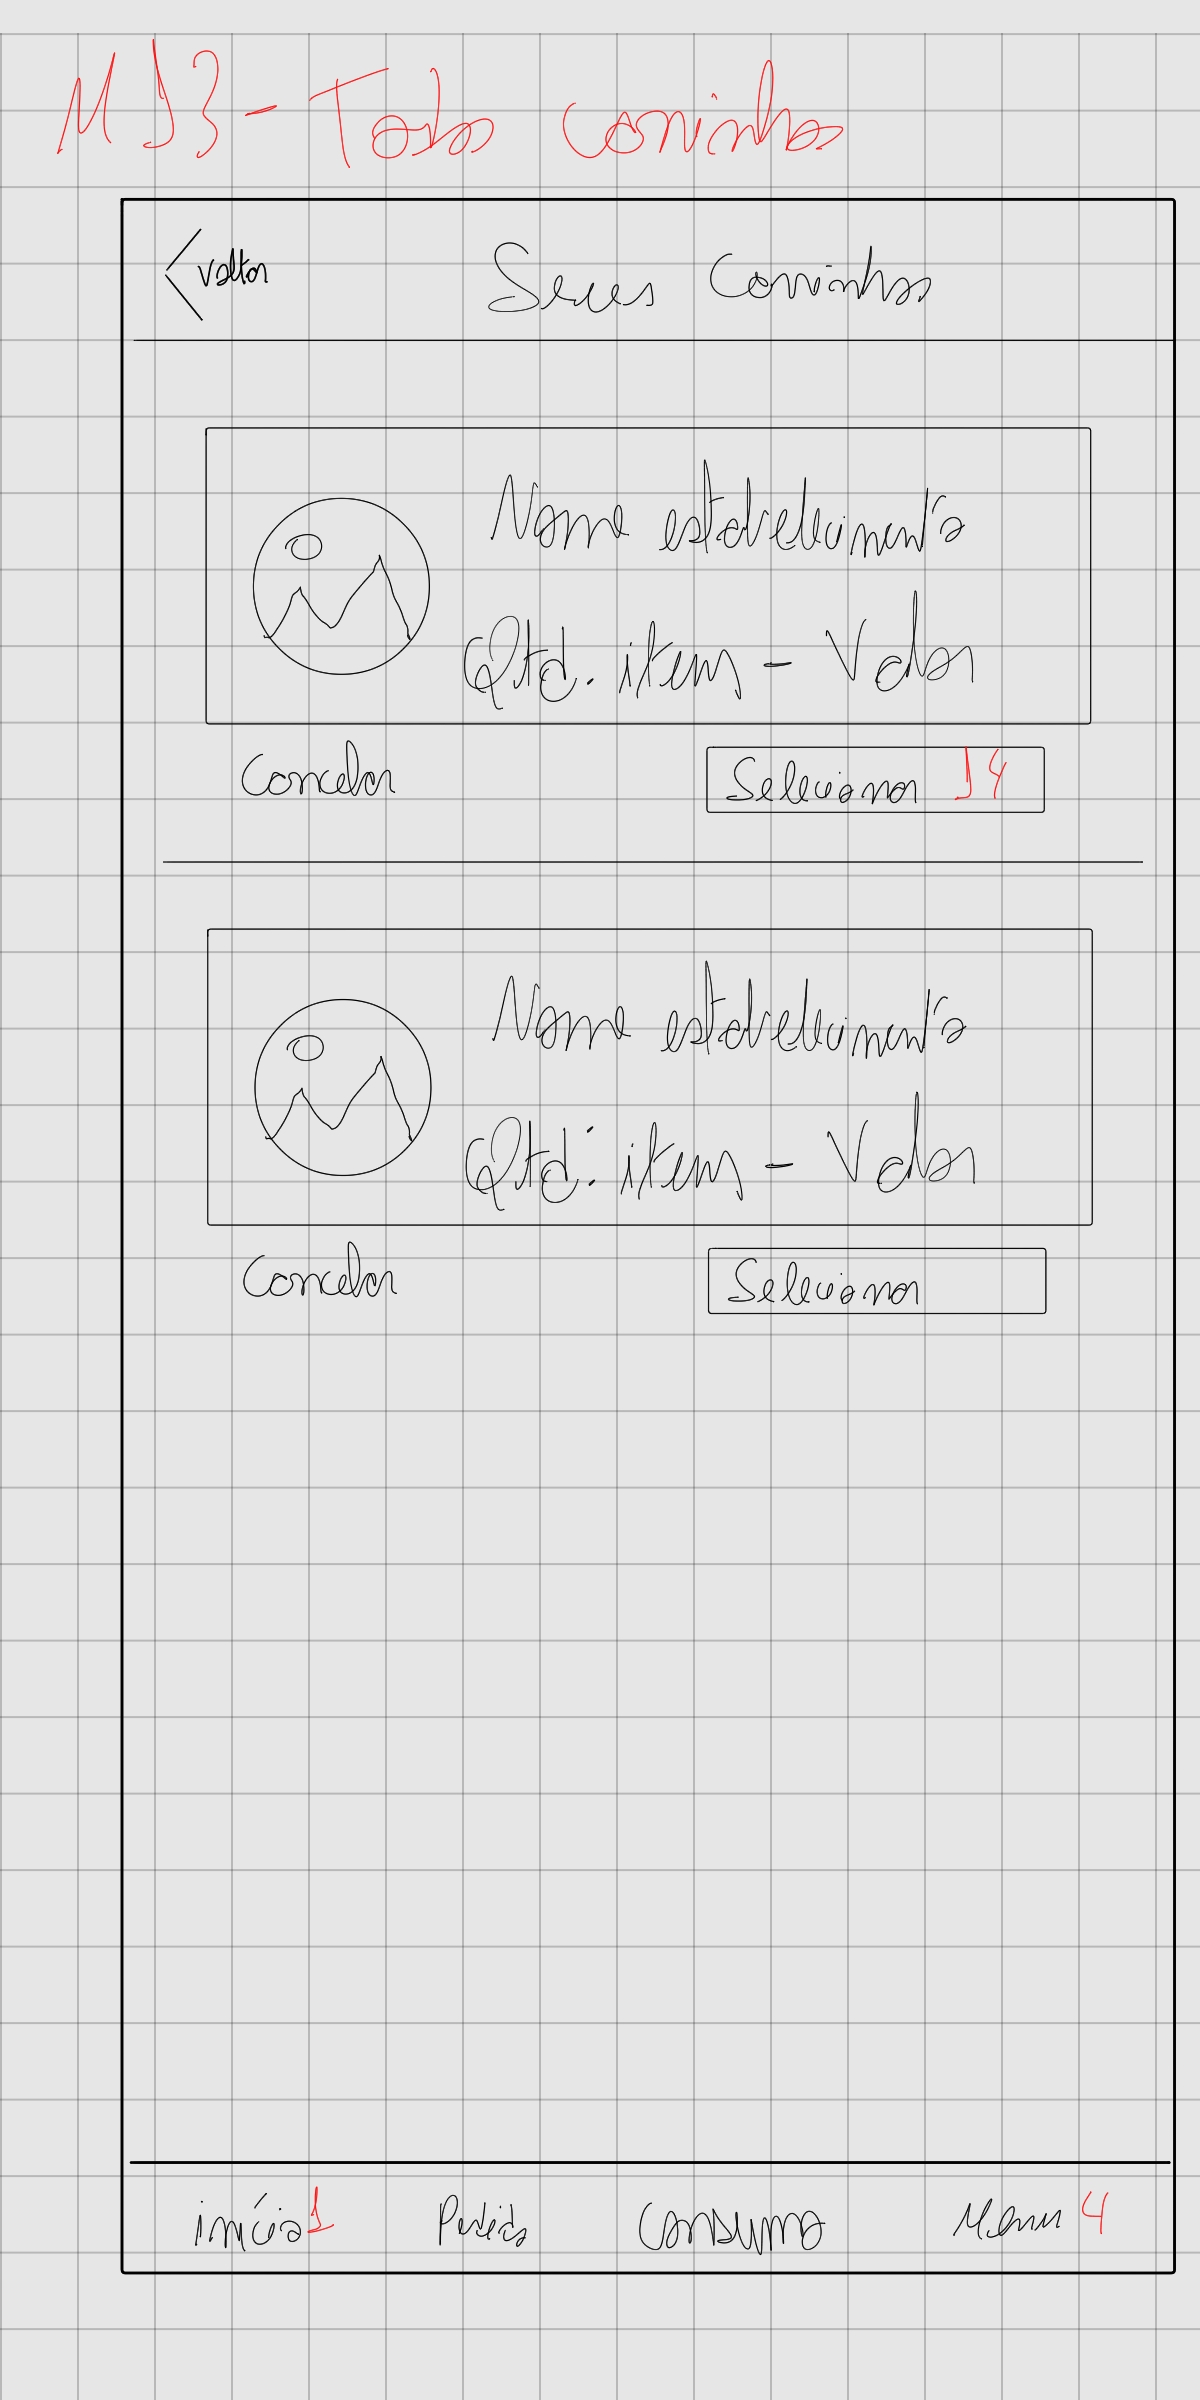 M13 - Todos Carrinhos
Voltar
Seus Carrinhos
Nome estabelecimento
Qtd. itens - Valor
Cancelar
Selecionar 14
Nome estabelecimento
Qtd. itens - Valor
Cancelar
Selecionar
início 1 Pedidos Consumo Menu 4